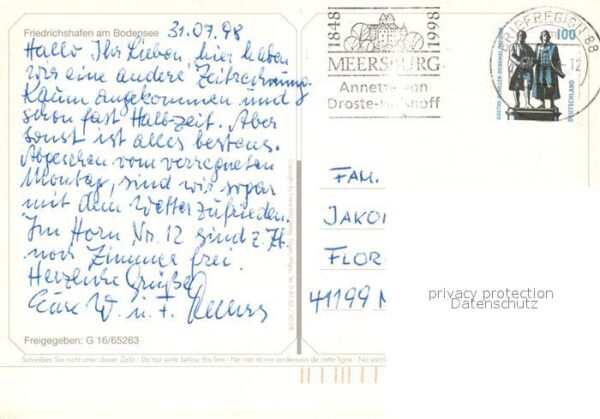 Friedrichshafen am Bodensee
31.07.98
Hallo Ihr Lieben, hier haben
wir eine andere Zeitrechnung.
Kaum angekommen und
schon fast Halbzeit. Aber
sonst ist alles bestens.
Abgesehen vom verregneten
Montag, sind wir sogar
mit dem Wetter zufrieden.
Im Horn Nr. 12 sind z. Zt.
noch Zimmer frei.
Herzliche Grüße
Eure W. u. F.
Freigegeben: G 16/65263
Schreiben Sie nicht unter dieser Zeile · Do not write below this line · Ne rien écrire au-dessous de cette ligne · Na escri
1848 1998
MEERSBURG
Annette von
Droste-Hülshoff
BRIEFREGION 88
-12
100
GOETHE-SCHILLER-DENKMAL WEIMAR
DEUTSCHLAND
FAM.
JAKO
FLOR
41199 M
privacy protection
Datenschutz